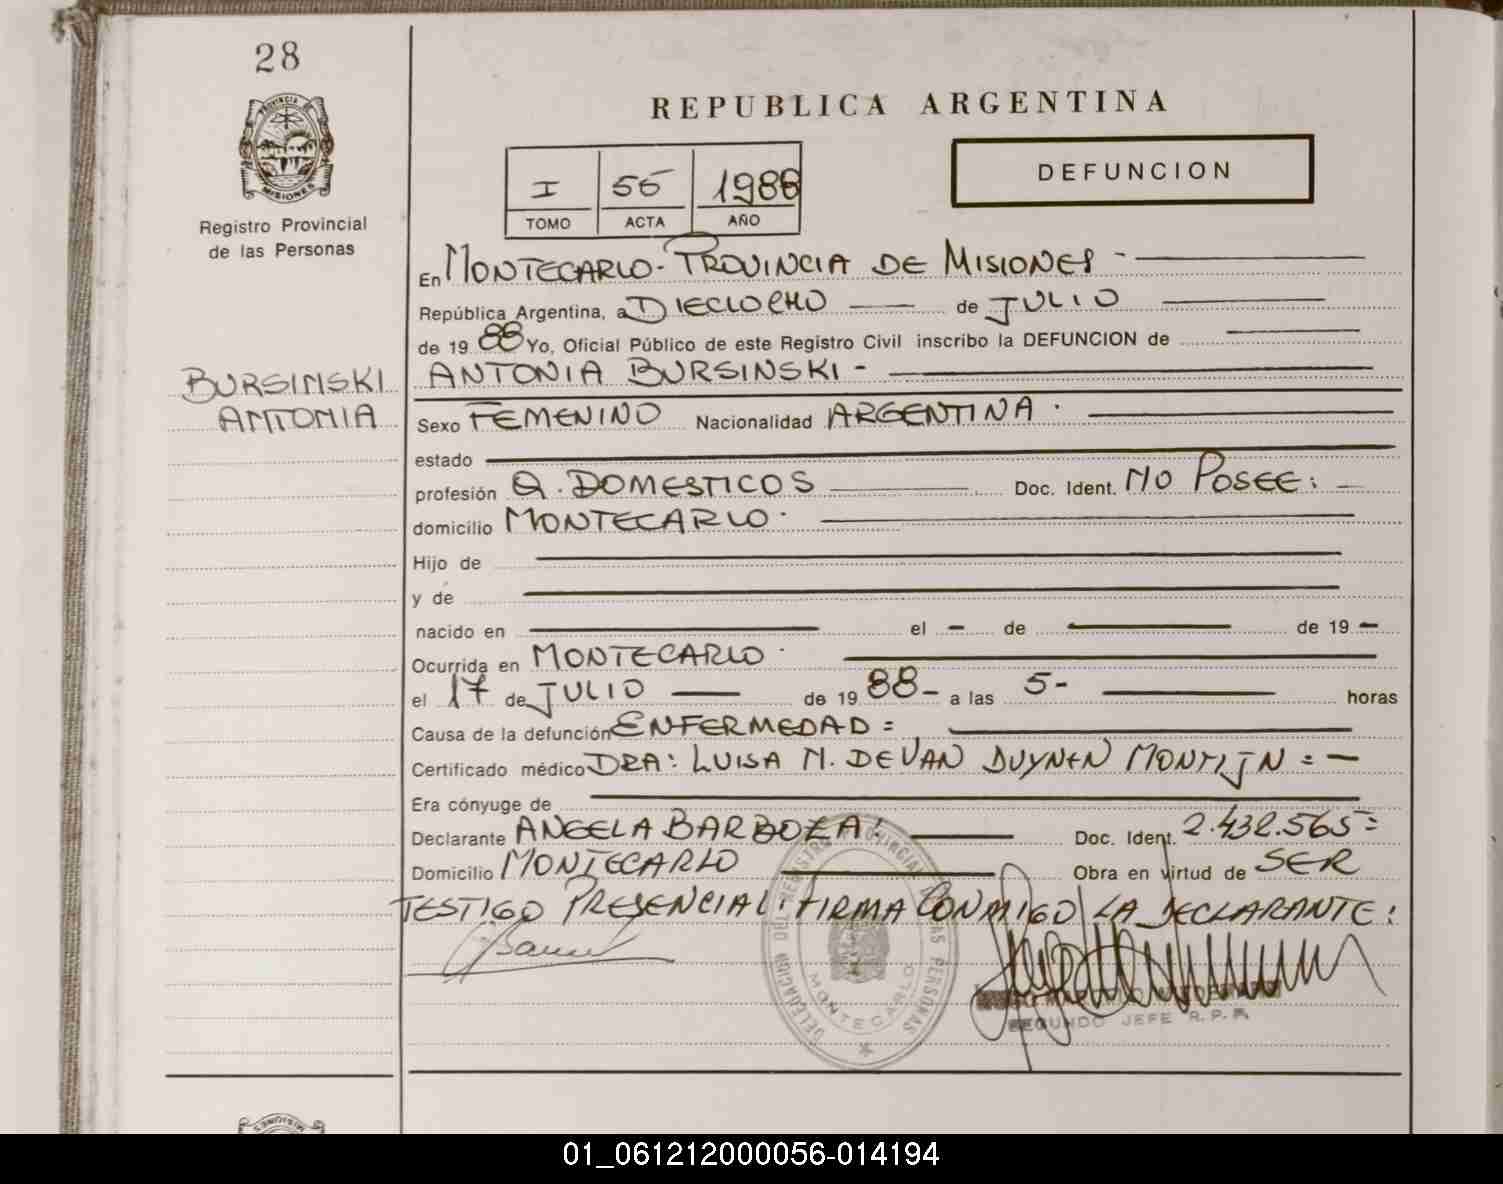 28
PROVINCIA DE
MISIONES
Registro Provincial
de las Personas
BURSINSKI
ANTONIA
REPUBLICA ARGENTINA
DEFUNCION
I 55 1988
TOMO ACTA AÑO
En MONTECARLO - PROVINCIA DE MISIONES -
República Argentina, a DIECIOCHO de JULIO
de 19 88 Yo, Oficial Público de este Registro Civil inscribo la DEFUNCION de
ANTONIA BURSINSKI -
Sexo FEMENINO Nacionalidad ARGENTINA .
estado
profesión Q. DOMESTICOS Doc. Ident. NO POSEE : -
domicilio MONTECARLO .
Hijo de
y de
nacido en el - de de 19 -
Ocurrida en MONTECARLO .
el 17 de JULIO de 19 88 - a las 5 - horas
Causa de la defunción ENFERMEDAD =
Certificado médico DRA: LUISA M. DE VAN DUYNEN MONTIJN = -
Era cónyuge de
Declarante ANGELA BARBOZA : Doc. Ident. 2.432.565 =
Domicilio MONTECARLO Obra en virtud de SER
TESTIGO PRESENCIAL : FIRMA CONMIGO LA DECLARANTE :
DELEGACION DEL REGISTRO PROVINCIAL DE LAS PERSONAS
MONTECARLO
SEGUNDO JEFE R.P.P.
MISIONES
01_061212000056-014194